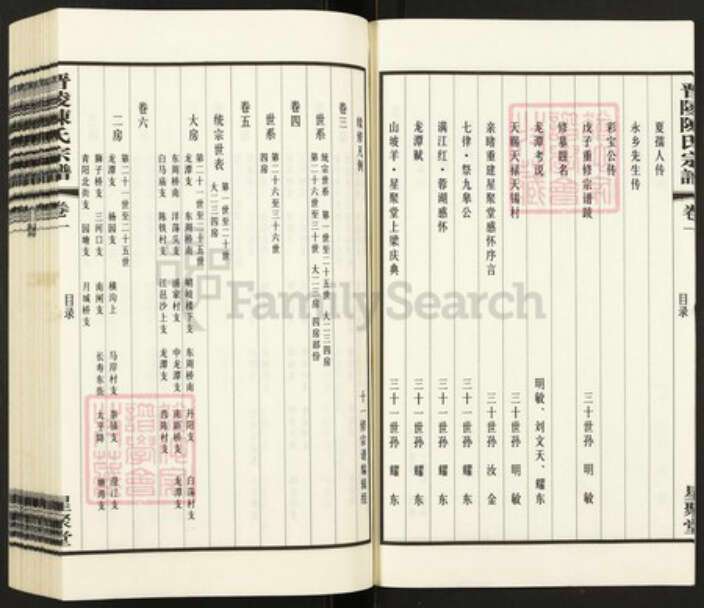 晋陵陳氏宗譜 卷一 目录 星聚堂
夏孺人传
永乡先生传
彩宝公传
戊子重修宗谱跋 三十世孙 明敏
修墓题名
龙潭考说 明敏、刘文天、耀东
天赐天禄天锡村 三十世孙 明敏
亲睹重建星聚堂感怀序言 三十一世孙 汝金
七律·祭九皋公 三十一世孙 耀东
满江红·蓉湖感怀 三十一世孙 耀东
龙潭赋 三十一世孙 耀东
山坡羊·星聚堂上梁庆典 三十一世孙 耀东
续修凡例 十一修宗谱编辑组
卷三
世系 统宗世系 第一世至二十五世 大二三四房
第二十六世至三十世 大二三房 四房部份
卷四
世系 第二十六世至三十六世
四房
卷五
统宗世表 第一世至二十世
大二三四房
大房 第二十一世至二十五世
龙潭支 东周桥南 嘴岐楼下支 东周桥南 丹阳支 白荡村支
东周桥南 洋荡头支 潘家村支 中龙潭支 南新桥支 龙潭支
白马庙支 陈铁村支 汪邑沙上支 龙潭支 西陈村支
卷六
二房 第二十一世至二十五世
龙潭支 杨园支 横沟上 马岸村支 澄江支
狮子桥支 三河口支 南闸支 长寿东街 太平
青阳北街支 园地支 月城桥支
晋陵陳氏宗譜 卷一 目录 星聚堂
FamilySearch